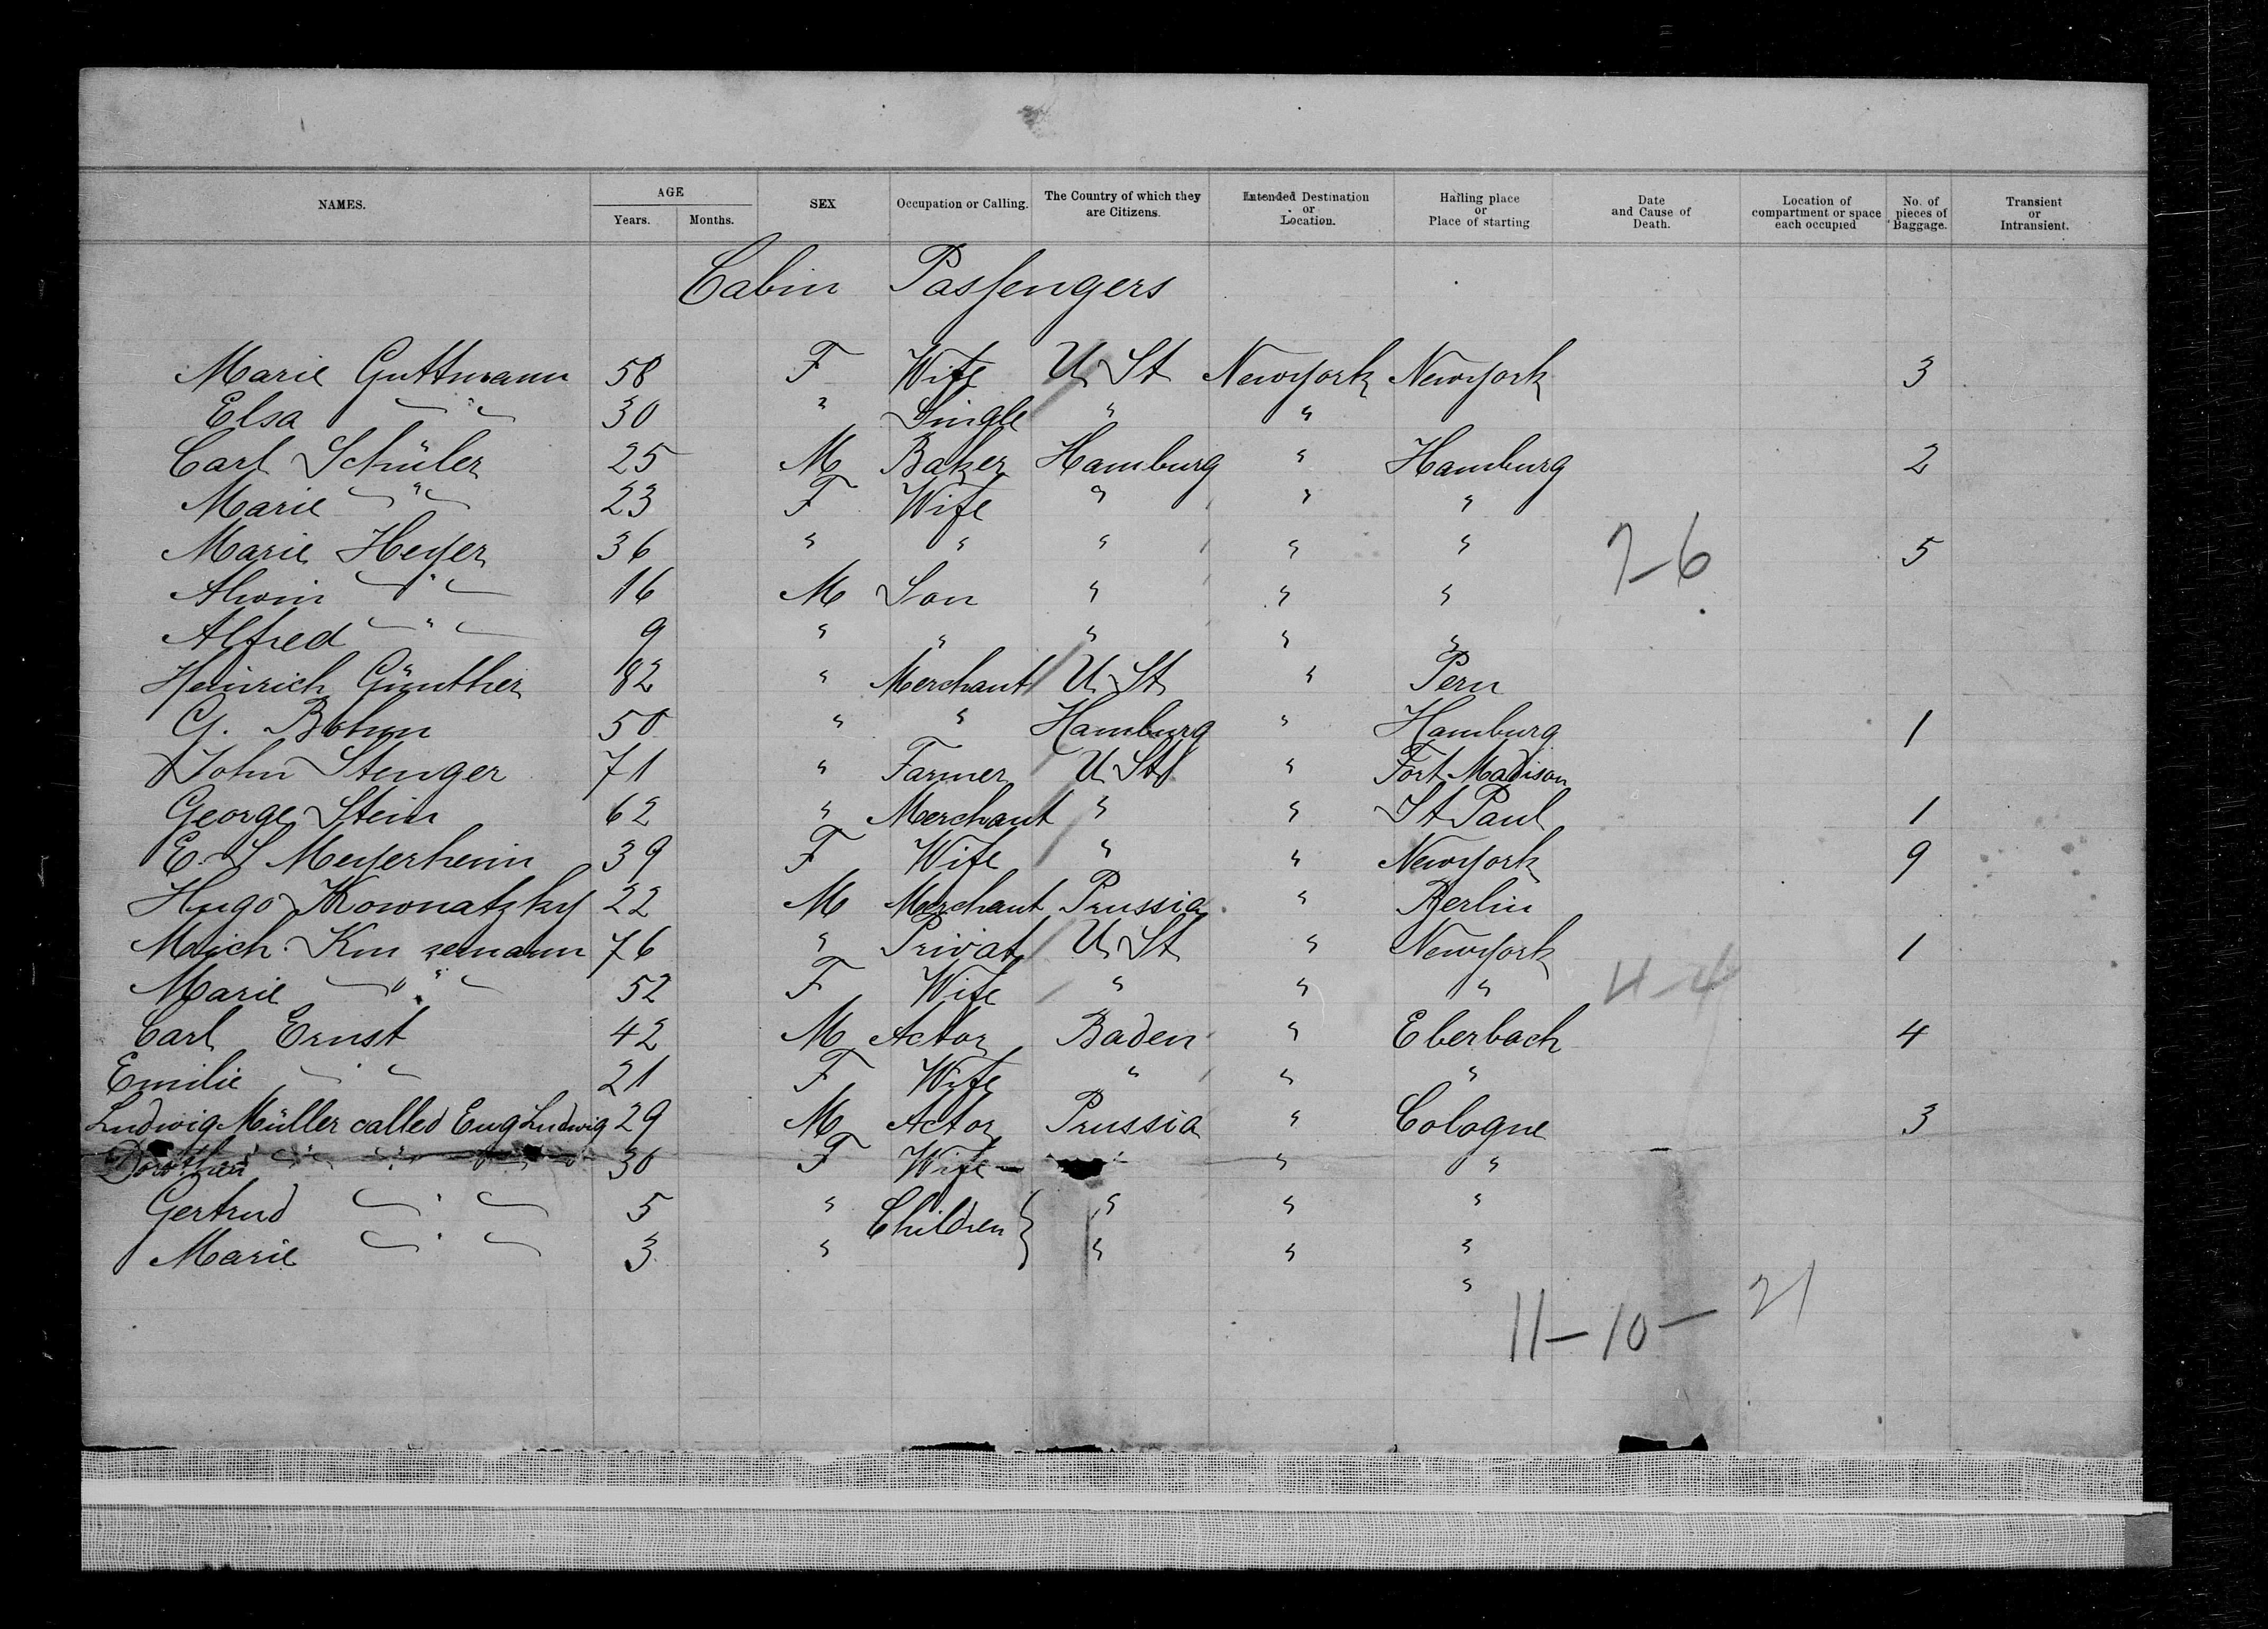 NAMES. AGE Years. Months. SEX Occupation or Calling. The Country of which they are Citizens. Intended Destination or Location. Hailing place or Place of starting Date and Cause of Death. Location of compartment or space each occupied No. of pieces of Baggage. Transient or Intransient.
Cabin Passengers
Marie Guttmann 58 F Wife U St Newyork Newyork 3
Elsa " 30 " Single " "
Carl Schüler 25 M Baker Hamburg " Hamburg 2
Marie " 23 F Wife " " "
Marie Heyer 36 " " " " " 5
7-6
Alwin " 16 M Son " " "
Alfred " 9 " " " " "
Heinrich Günther 82 " Merchant U St " Peru
G. Bohm 50 " " Hamburg " Hamburg 1
John Stenger 71 " Farmer U St " Fort Madison
George Stein 62 " Merchant " " St Paul 1
E. S Meyerheim 39 F Wife " " Newyork 9
Hugo Kownatzky 22 M Merchant Prussia " Berlin
Mich. 76 " Privat U St " Newyork 1
Marie " 52 F Wife " " " 4-4
Carl Ernst 42 M Actor Baden " Eberbach 4
Emilie " 21 F Wife " " "
Ludwig Müller called Eug Ludwig 29 M Actor Prussia " Cologne 3
Dorothea " " " " 30 F Wife " " "
Gertrud " 5 " Children } " " "
Marie " 3 " " " "
"
11-10- 21